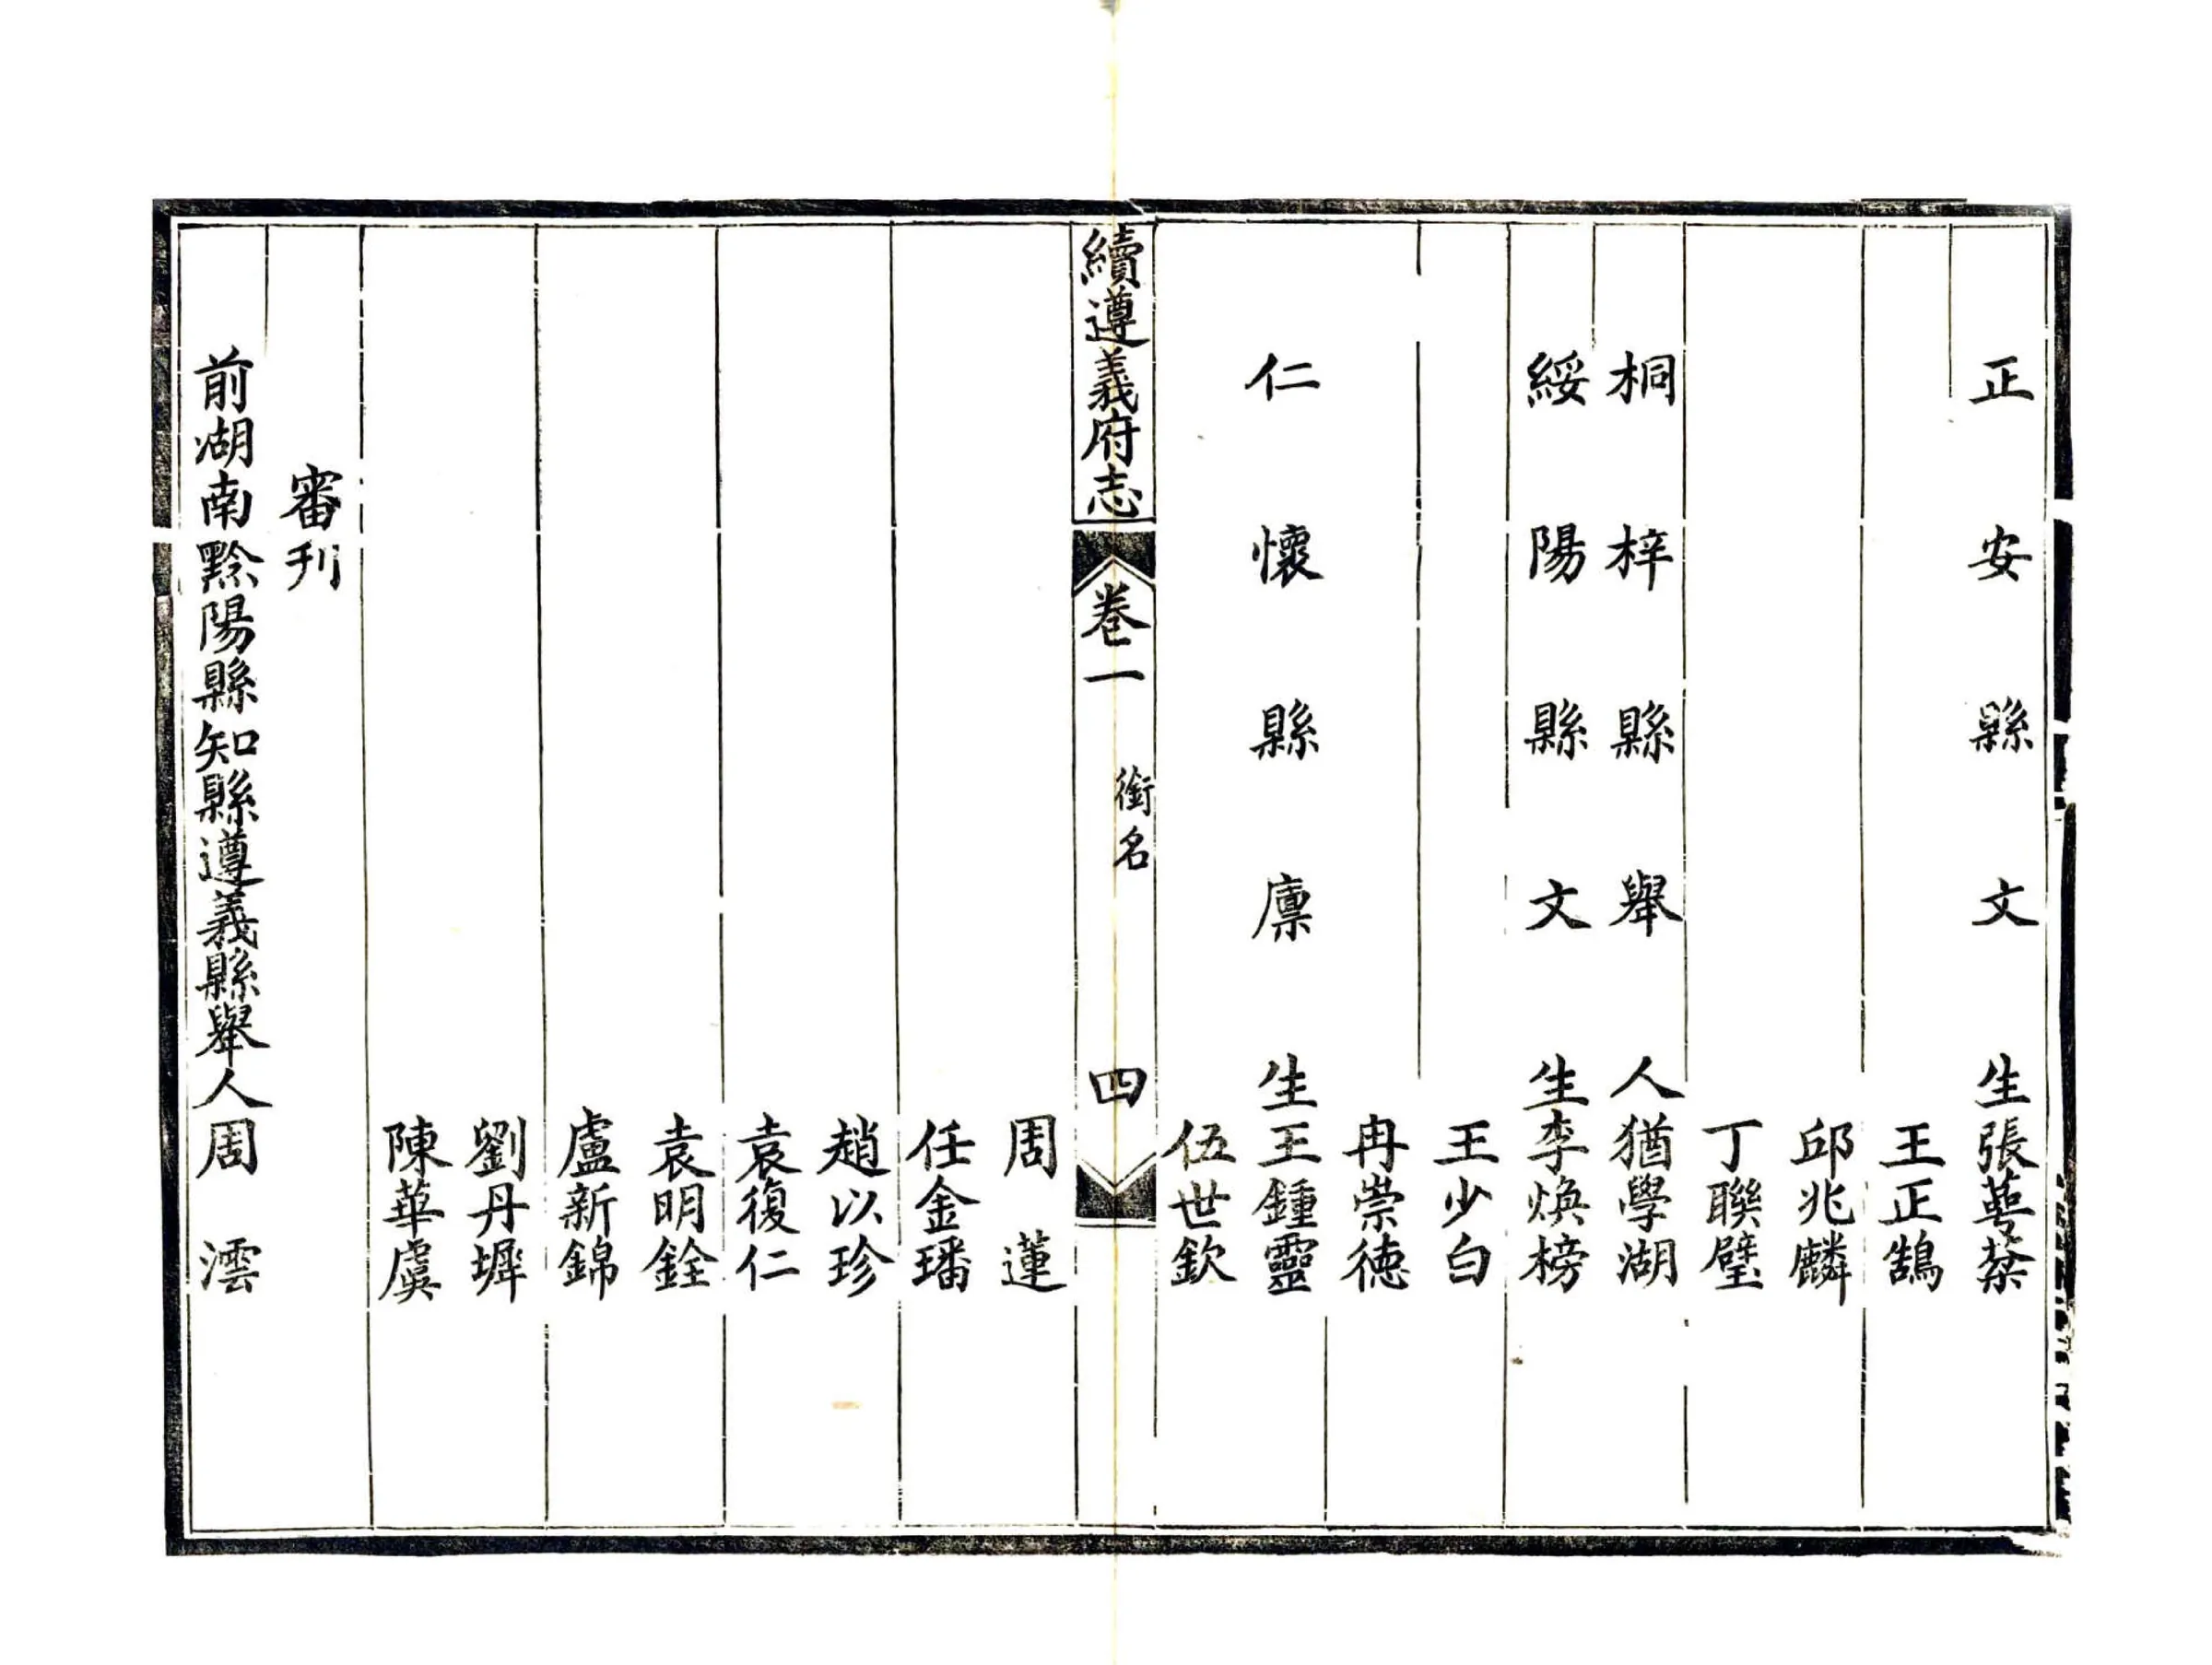 正安縣文生張萼棻
王正鵠
邱兆麟
丁聯璧
桐梓縣舉人猶學湖
綏陽縣文生李煥榜
王少白
冉崇德
仁懷縣廩生王鍾靈
伍世欽
續遵義府志 卷一 銜名 四
周蓮
任金璠
趙以珍
袁復仁
袁明銓
盧新錦
劉丹墀
陳華虞
審刊
前湖南黔陽縣知縣遵義縣舉人周澐